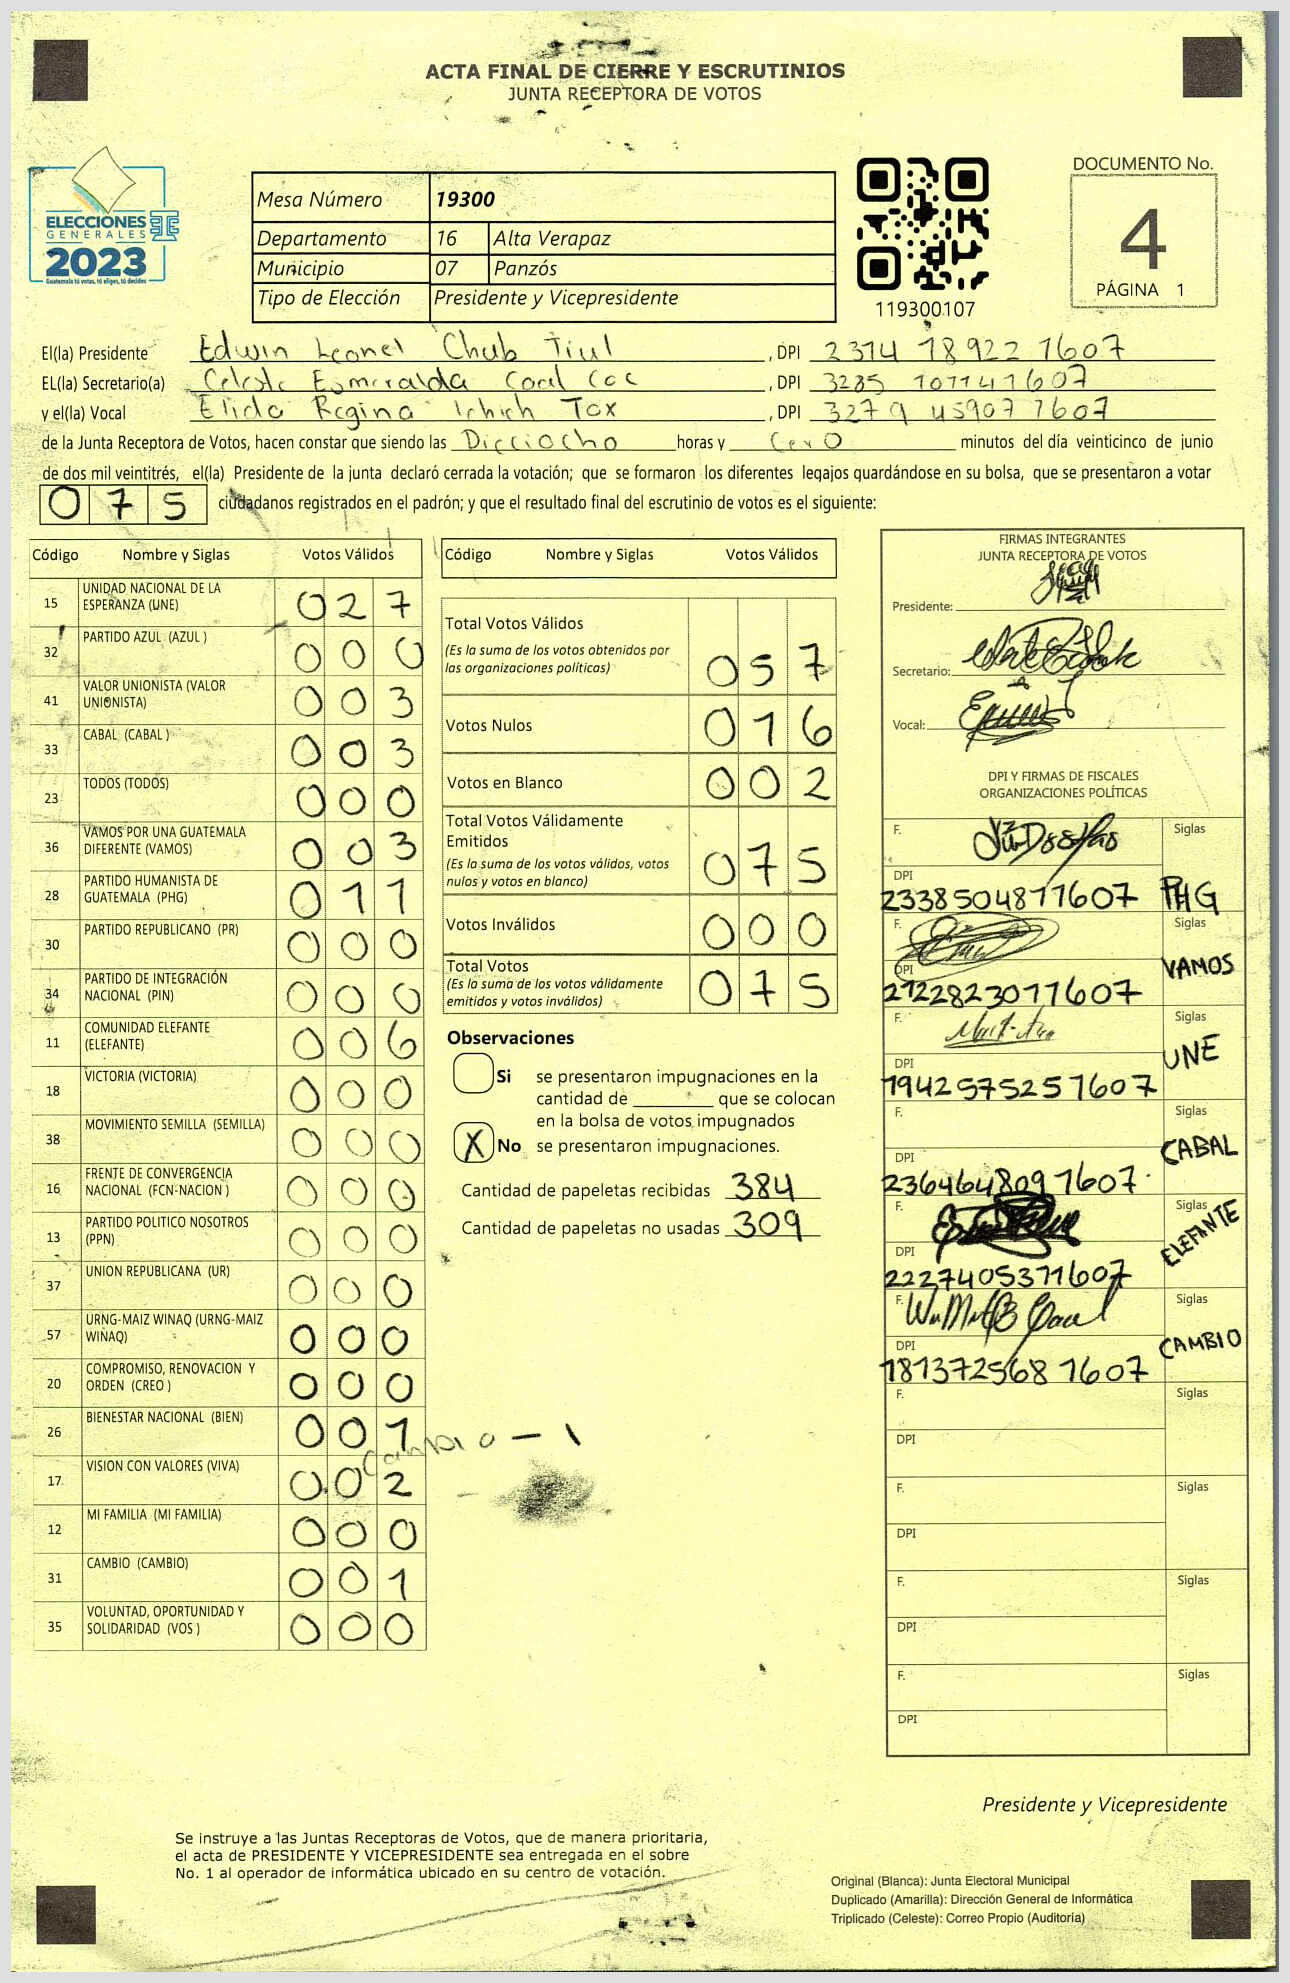 ACTA FINAL DE CIERRE Y ESCRUTINIOS
JUNTA RECEPTORA DE VOTOS
ELECCIONES
GENERALES
2023
Guatemala tú votas, tú eliges, tú decides
Mesa Número 19300
Departamento 16 Alta Verapaz
Municipio 07 Panzós
Tipo de Elección Presidente y Vicepresidente
119300107
DOCUMENTO No.
4
PÁGINA 1
El(la) Presidente Edwin Leonel Chub Tiul , DPI 2314 18922 1607
EL(la) Secretario(a) Celeste Esmeralda Caal Coc , DPI 3285 10114 1607
y el(la) Vocal Elida Regina Ichich Tox , DPI 3279 45907 1607
de la Junta Receptora de Votos, hacen constar que siendo las Dieciocho horas y Cero minutos del día veinticinco de junio
de dos mil veintitrés, el(la) Presidente de la junta declaró cerrada la votación; que se formaron los diferentes legajos guardándose en su bolsa, que se presentaron a votar
075 ciudadanos registrados en el padrón; y que el resultado final del escrutinio de votos es el siguiente:
Código Nombre y Siglas Votos Válidos
15 UNIDAD NACIONAL DE LA ESPERANZA (UNE) 027
32 PARTIDO AZUL (AZUL ) 000
41 VALOR UNIONISTA (VALOR UNIONISTA) 003
33 CABAL (CABAL ) 003
23 TODOS (TODOS) 000
36 VAMOS POR UNA GUATEMALA DIFERENTE (VAMOS) 003
28 PARTIDO HUMANISTA DE GUATEMALA (PHG) 011
30 PARTIDO REPUBLICANO (PR) 000
34 PARTIDO DE INTEGRACIÓN NACIONAL (PIN) 000
11 COMUNIDAD ELEFANTE (ELEFANTE) 006
18 VICTORIA (VICTORIA) 000
38 MOVIMIENTO SEMILLA (SEMILLA) 000
16 FRENTE DE CONVERGENCIA NACIONAL (FCN-NACION ) 000
13 PARTIDO POLITICO NOSOTROS (PPN) 000
37 UNION REPUBLICANA (UR) 000
57 URNG-MAIZ WINAQ (URNG-MAIZ WINAQ) 000
20 COMPROMISO, RENOVACION Y ORDEN (CREO ) 000
26 BIENESTAR NACIONAL (BIEN) 001
Cambio - 1
17 VISION CON VALORES (VIVA) 002
12 MI FAMILIA (MI FAMILIA) 000
31 CAMBIO (CAMBIO) 001
35 VOLUNTAD, OPORTUNIDAD Y SOLIDARIDAD (VOS ) 000
Código Nombre y Siglas Votos Válidos
Total Votos Válidos
(Es la suma de los votos obtenidos por
las organizaciones políticas) 057
Votos Nulos 016
Votos en Blanco 002
Total Votos Válidamente
Emitidos
(Es la suma de los votos válidos, votos
nulos y votos en blanco) 075
Votos Inválidos 000
Total Votos
(Es la suma de los votos válidamente
emitidos y votos inválidos) 075
Observaciones
Si se presentaron impugnaciones en la
cantidad de ________ que se colocan
en la bolsa de votos impugnados
X No se presentaron impugnaciones.
Cantidad de papeletas recibidas 384
Cantidad de papeletas no usadas 309
FIRMAS INTEGRANTES
JUNTA RECEPTORA DE VOTOS
Presidente:
Secretario:
Vocal:
DPI Y FIRMAS DE FISCALES
ORGANIZACIONES POLÍTICAS
F. Siglas
DPI
2338504871607 PHG
F. Siglas
DPI
2122823071607 VAMOS
F. Siglas
DPI
1942575251607 UNE
F. Siglas
DPI
2364648091607 CABAL
F. Siglas
DPI
2227405371607 ELEFANTE
F. Siglas
DPI
1813725681607 CAMBIO
F. Siglas
DPI
F. Siglas
DPI
F. Siglas
DPI
F. Siglas
DPI
Presidente y Vicepresidente
Se instruye a las Juntas Receptoras de Votos, que de manera prioritaria,
el acta de PRESIDENTE Y VICEPRESIDENTE sea entregada en el sobre
No. 1 al operador de informática ubicado en su centro de votación.
Original (Blanca): Junta Electoral Municipal
Duplicado (Amarilla): Dirección General de Informática
Triplicado (Celeste): Correo Propio (Auditoría)